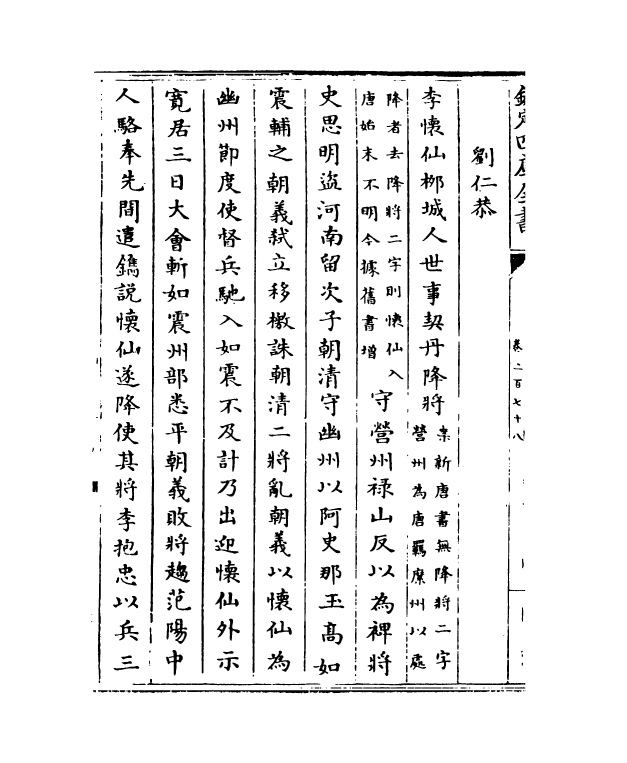 欽定四庫全書
卷二百七十八
劉仁恭
李懷仙栁城人世事契丹降將案新唐書無降將二字營州為唐羈縻州以處
降者去降將二字則懷仙入唐始末不明今據舊書增守營州禄山反以為裨將
史思明盜河南留次子朝清守幽州以阿史那玉高如
震輔之朝義弑立移檄誅朝清二將亂朝義以懷仙為
幽州節度使督兵馳入如震不及計乃出迎懷仙外示
寛居三日大會斬如震州部悉平朝義敗將趨范陽中
人駱奉先間遣鐫說懷仙遂降使其將李抱忠以兵三